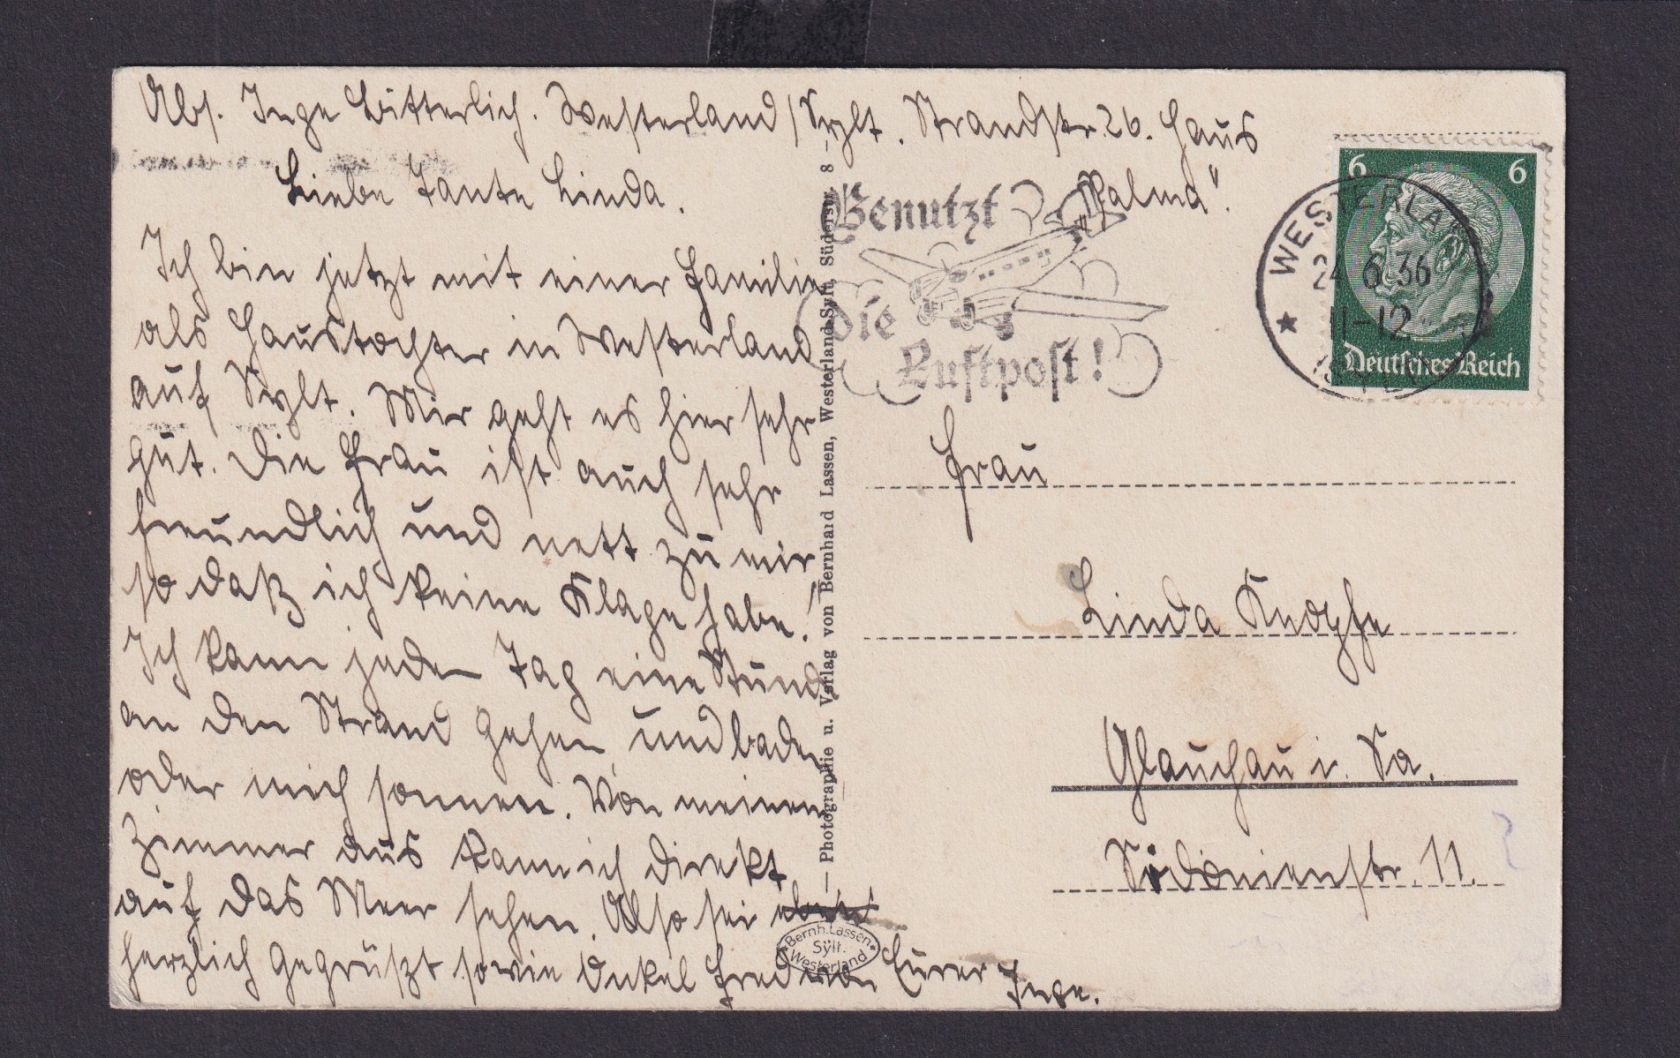 Abs. Inge Bitterlich. Westerland/Sylt. Strandstr. 26. Haus
"Palma".
Liebe Tante Linda.
Ich bin jetzt mit einer Familie
als Haustochter in Westerland
auf Sylt. Mir geht es hier sehr
gut. Die Frau ist auch sehr
freundlich und nett zu mir
so daß ich keine Klage habe!
Ich kann jeden Tag eine Stunde
an den Strand gehen, und baden
oder mich sonnen. Von meinem
Zimmer aus kann ich direkt
auf das Meer sehen. Also sei
herzlich gegrüßt sowie Onkel Fred von Eurer Inge.
Photographie u. Verlag von Bernhard Lassen, Westerland-Sylt, Süderstr. 8
Bernh. Lassen
Sylt.
Westerland
Benutzt
die
Luftpost!
WESTERLAND
24.6.36
11-12
(SYLT)
6 6
Deutsches Reich
Frau
Linda Knopfe
Glauchau i. Sa.
Sidonienstr. 11.